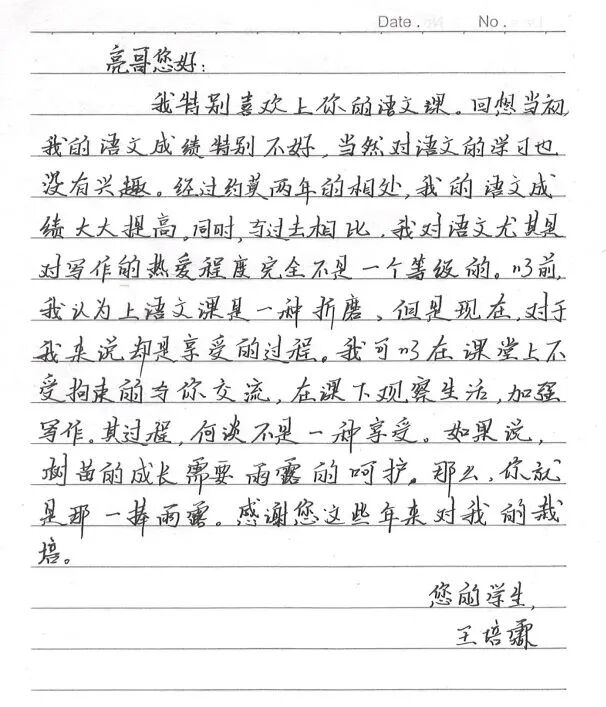 Date . No .
亮哥您好：
我特别喜欢上你的语文课。回想当初,
我的语文成绩特别不好，当然对语文的学习也
没有兴趣。经过约莫两年的相处，我的语文成
绩大大提高。同时，与过去相比，我对语文尤其是
对写作的热爱程度完全不是一个等级的。以前,
我认为上语文课是一种折磨，但是现在，对于
我来说却是享受的过程。我可以在课堂上不
受拘束的与你交流，在课下观察生活，加强
写作。其过程，何谈不是一种享受。如果说，
树苗的成长需要雨露的呵护。那么，你就
是那一捧雨露。感谢您这些年来对我的栽
培。
您的学生,
王培